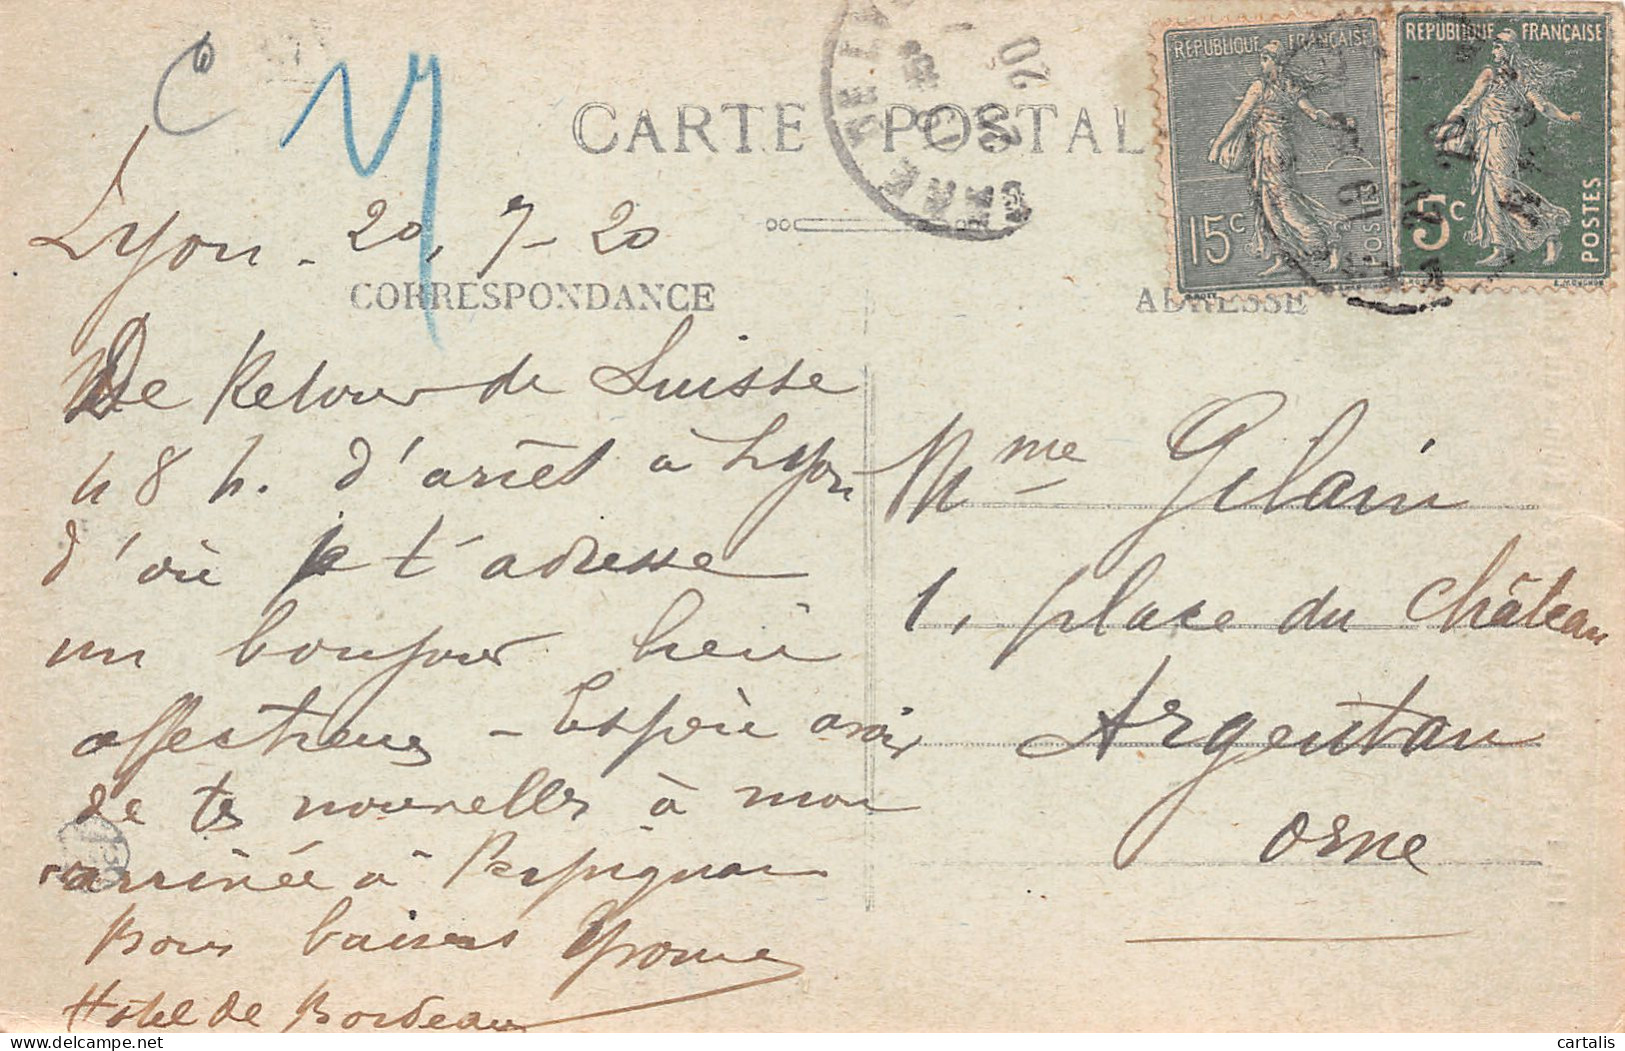 CARTE POSTAL
RÉPUBLIQUE FRANÇAISE
15c
POSTES
RÉPUBLIQUE FRANÇAISE
5c
POSTES
GARE
20
Lyon - 20, 7 - 20
CORRESPONDANCE
ADRESSE
De Retour de Suisse
48 h. d'arrêt à Lyon
d'où je t'adresse
un bonjour bien
affectueux - Espère avoir
de tes nouvelles à mon
arrivée à Perpignan
Bons baisers Yvonne
Hôtel de Bordeaux
Mme Gilain
1, place du Château
Argentan
Orne
cartalis